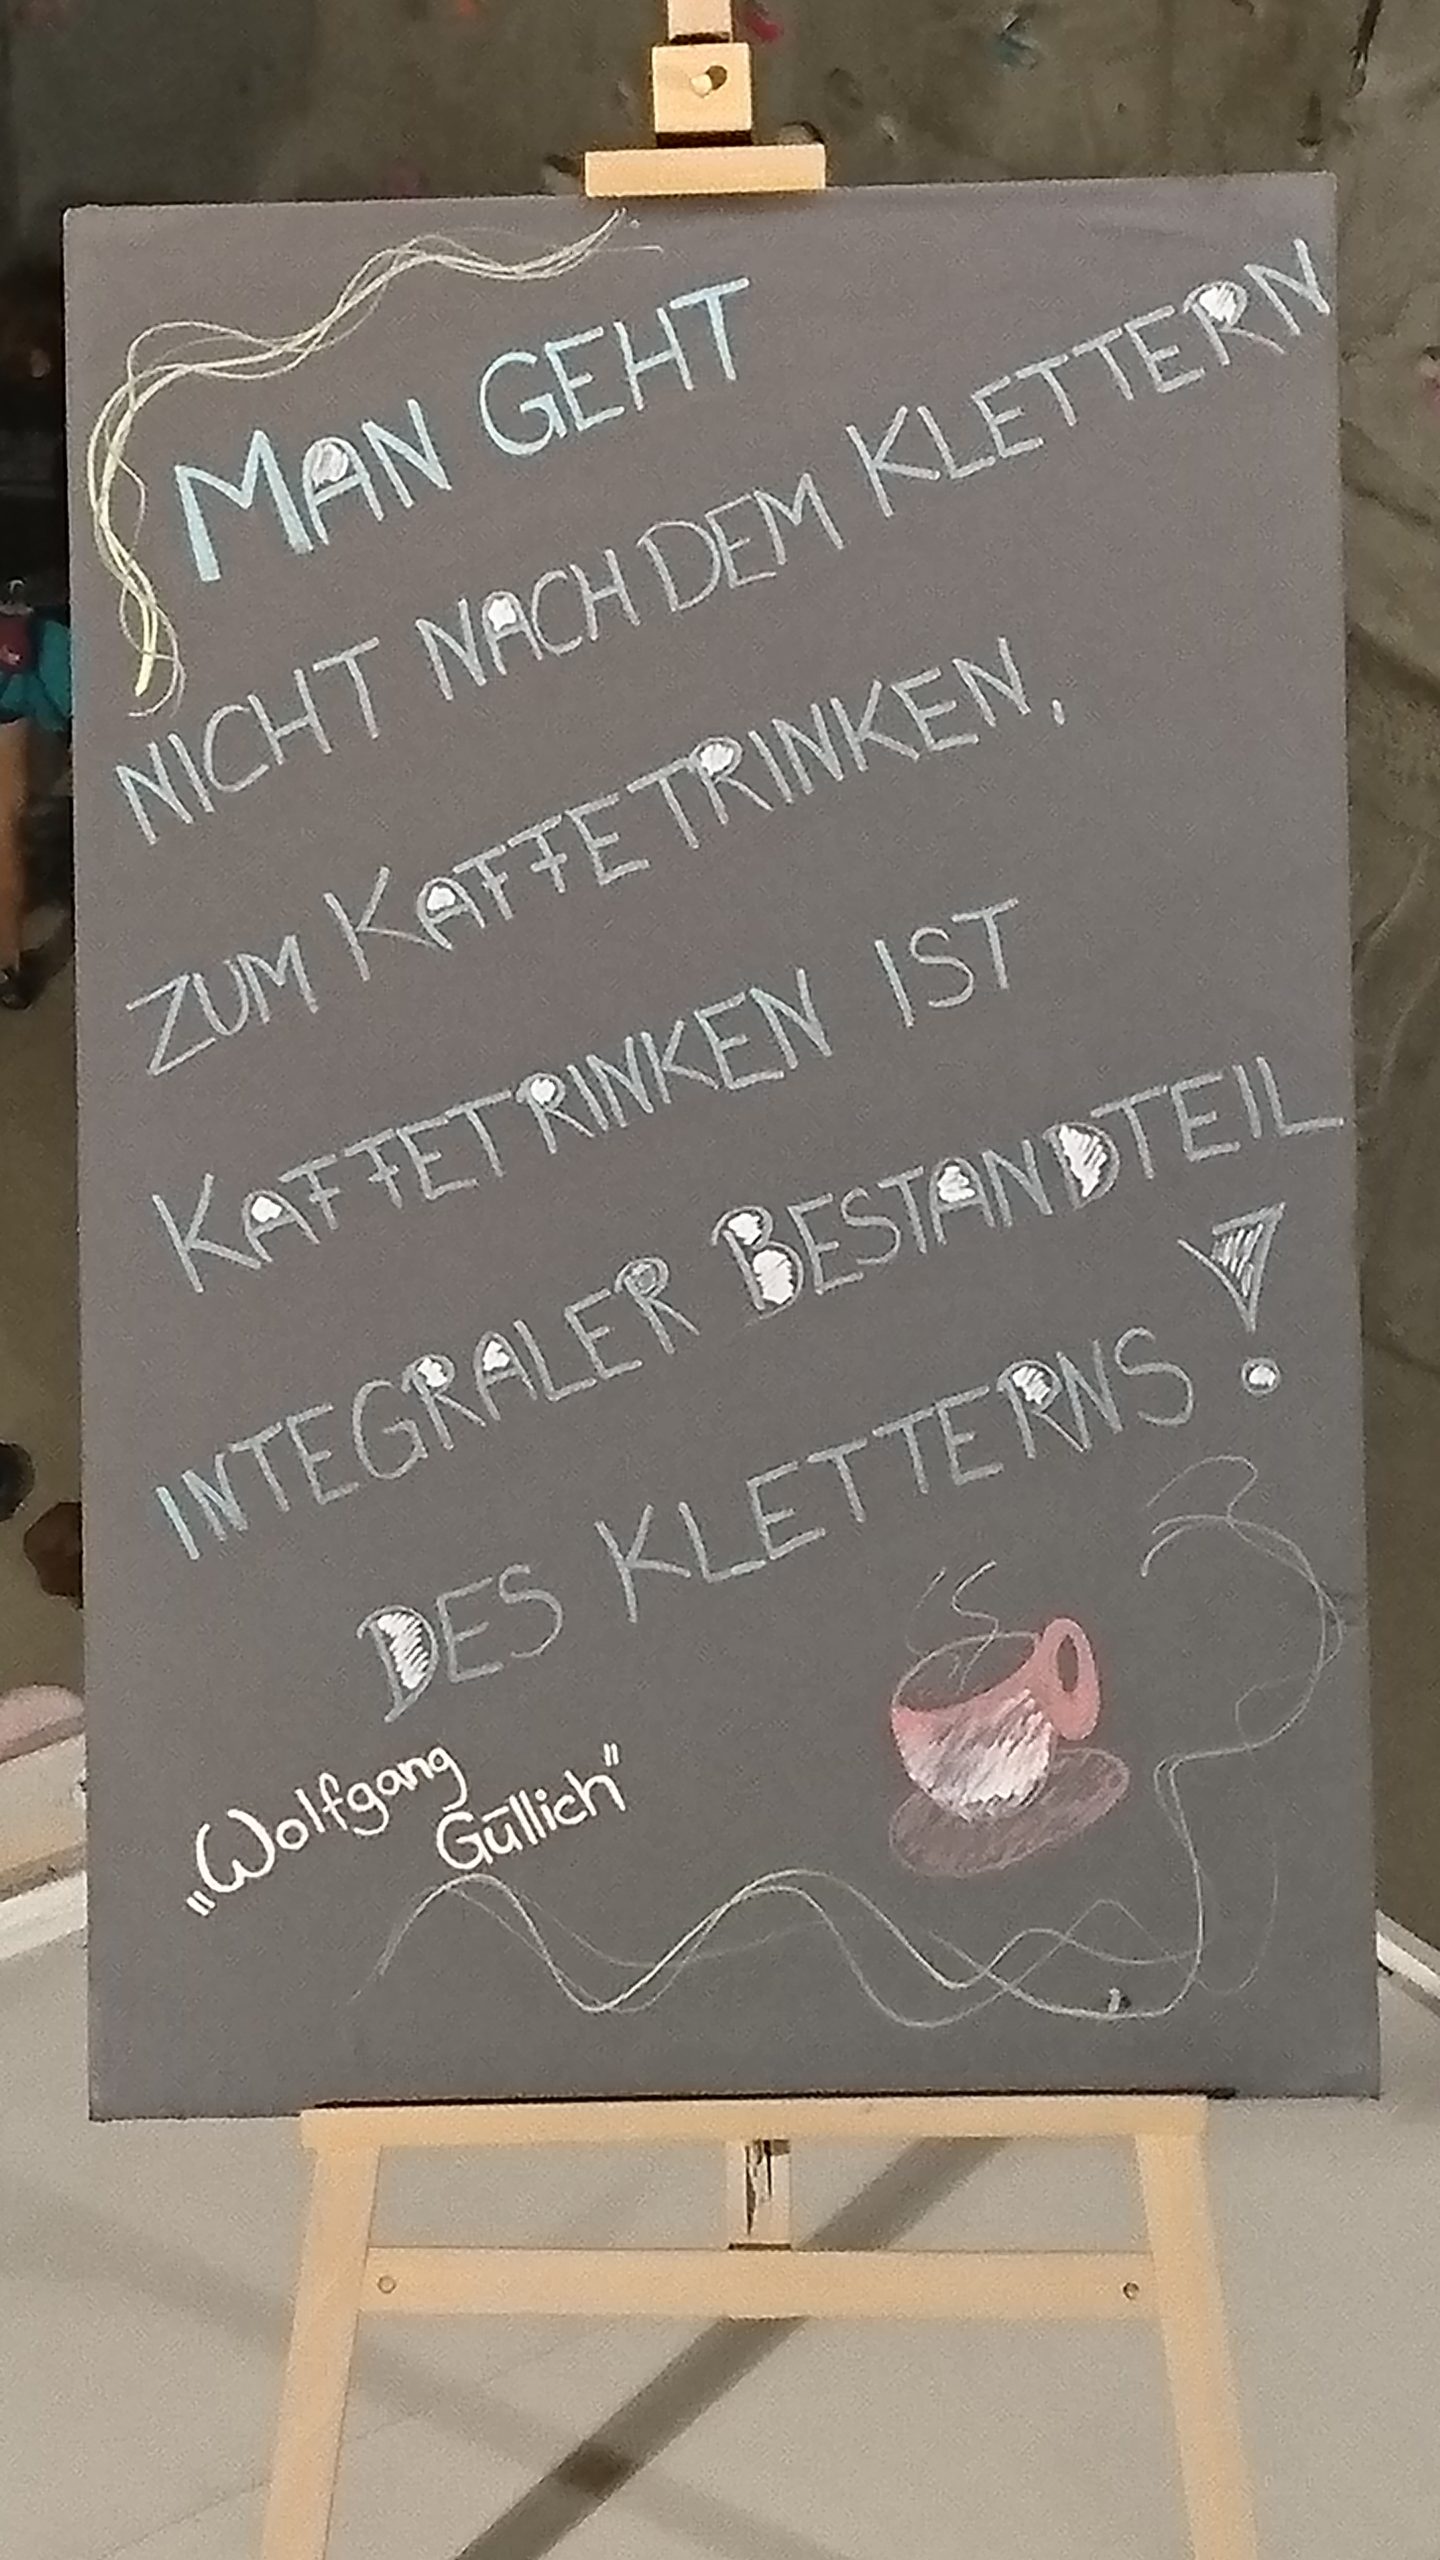 MAN GEHT
NICHT NACH DEM KLETTERN
ZUM KAFFETRINKEN,
KAFFETRINKEN IST
INTEGRALER BESTANDTEIL
DES KLETTERNS!
„Wolfgang
Güllich"